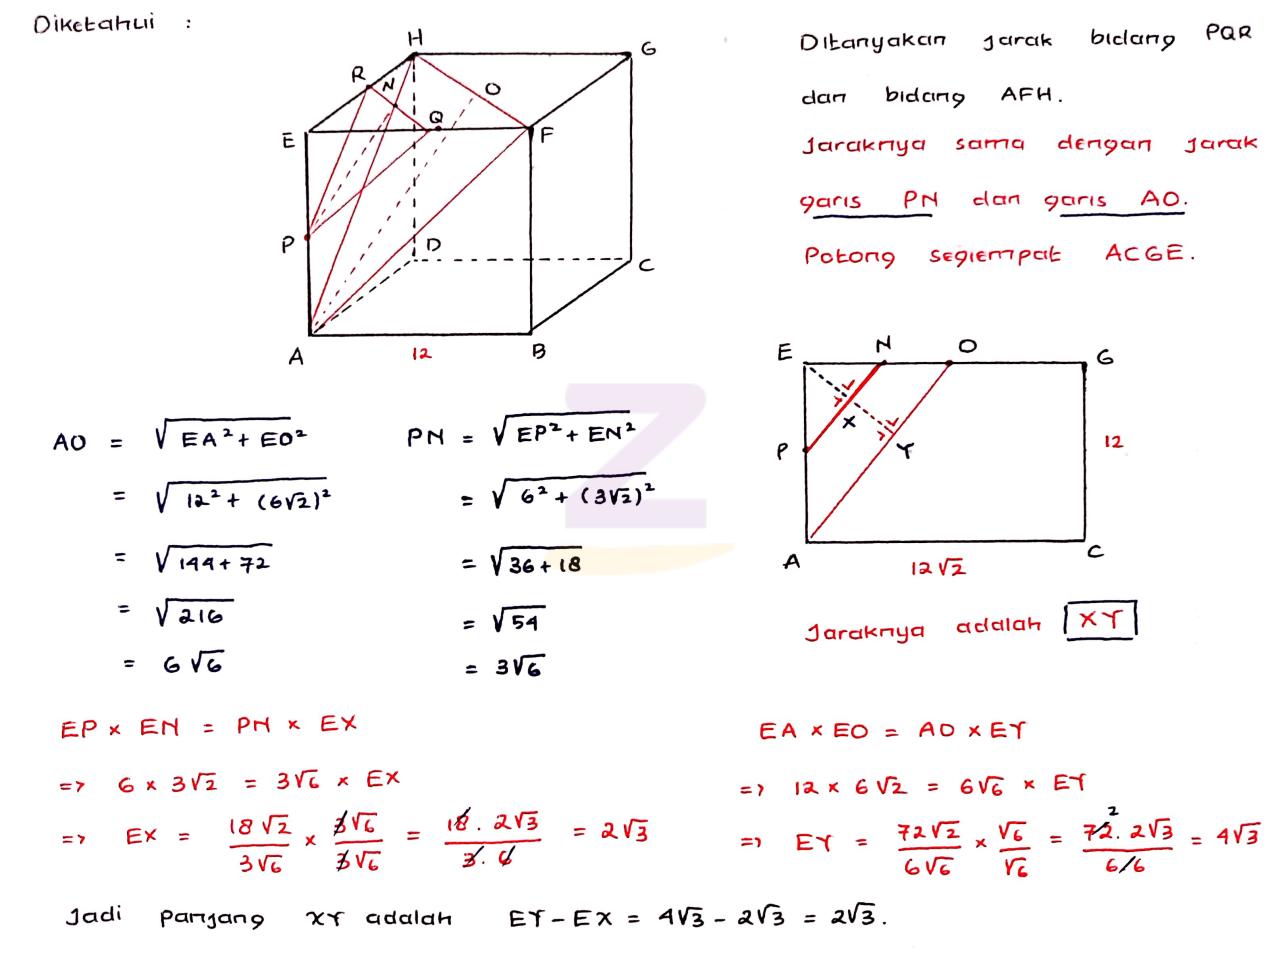 Diketahui :
H
G
R
N
O
Q
E
F
P
D
C
A
12
B
Ditanyakan jarak bidang PQR
dan bidang AFH.
Jaraknya sama dengan jarak
garis PN dan garis AO.
Potong segiempat ACGE.
E N O G
X
P Y 12
A C
12√2
Jaraknya adalah XY
AO = √EA² + EO²
= √12² + (6√2)²
= √144 + 72
= √216
= 6√6
PN = √EP² + EN²
= √6² + (3√2)²
= √36 + 18
= √54
= 3√6
EP × EN = PN × EX
=> 6 × 3√2 = 3√6 × EX
=> EX = 18√2/3√6 × 3√6/3√6 = 18 . 2√3/3 . 6 = 2√3
EA × EO = AO × EY
=> 12 × 6√2 = 6√6 × EY
2
=> EY = 72√2/6√6 × √6/√6 = 72 . 2√3/6/6 = 4√3
Jadi panjang XY adalah EY - EX = 4√3 - 2√3 = 2√3.
Z